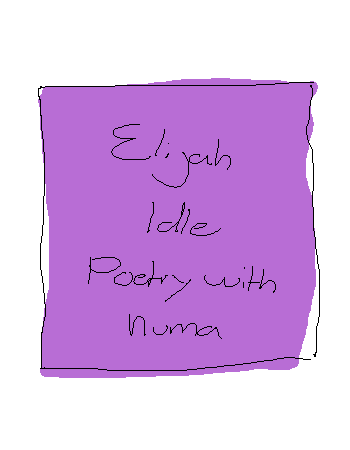 Elijah
Idle
Poetry with
Numa